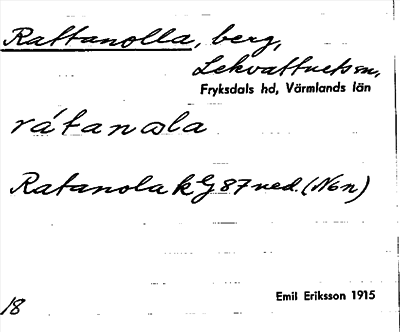 Rattanolla, berg,
Lekvattnets sn,
Fryksdals hd, Värmlands län
rátanɷla
Ratanola kG 87 ned. (Nön)
Emil Eriksson 1915
18